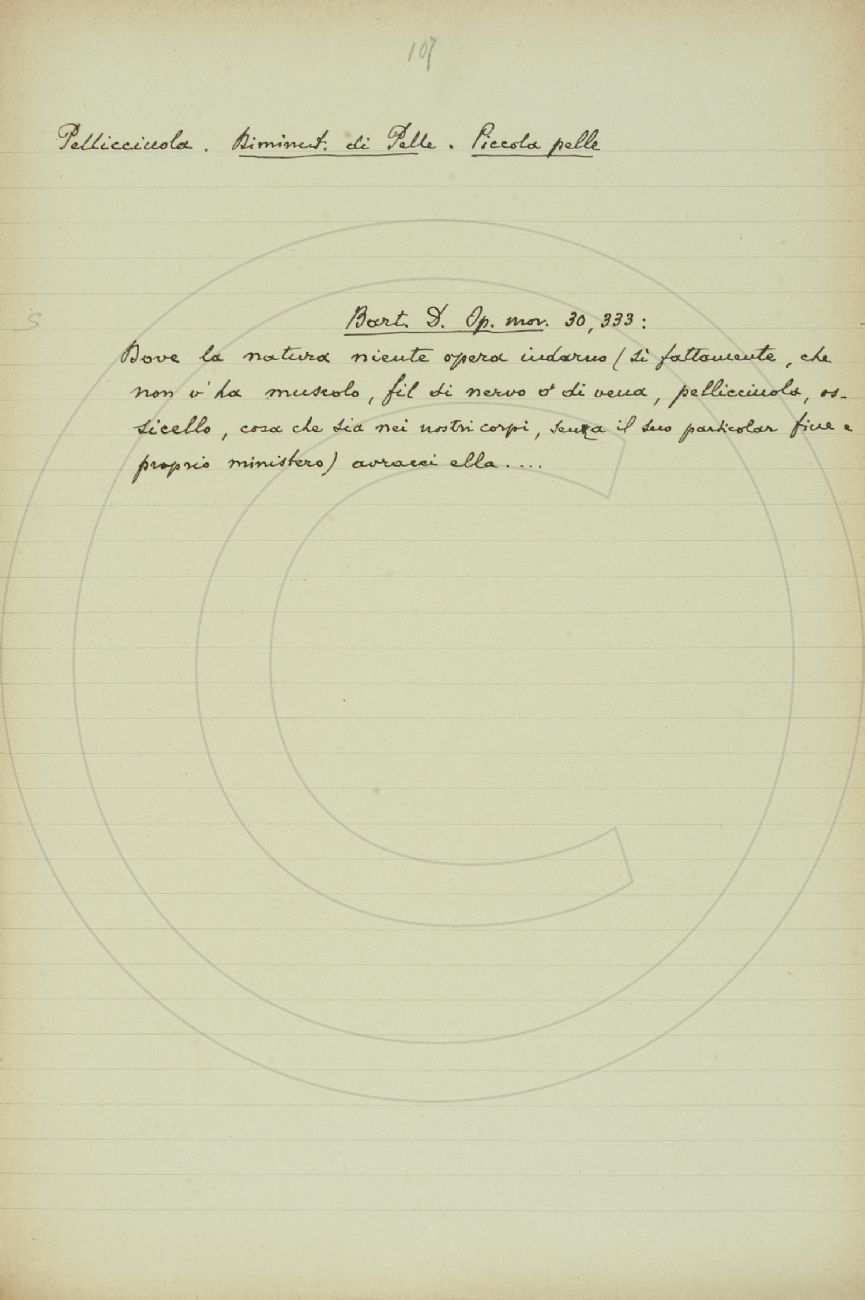 107
Pellicciuola. Diminut. di Pelle. Piccola pelle
S
Bart. D. Op. mor. 30, 333:
Dove la natura niente opera indarno (sì fattamente, che
non v'ha muscolo, fil di nervo o di vena, pellicciuola, os-
sicello, cosa che sia nei nostri corpi, senza il suo particolar fine e
proprio ministero) avracci ella....